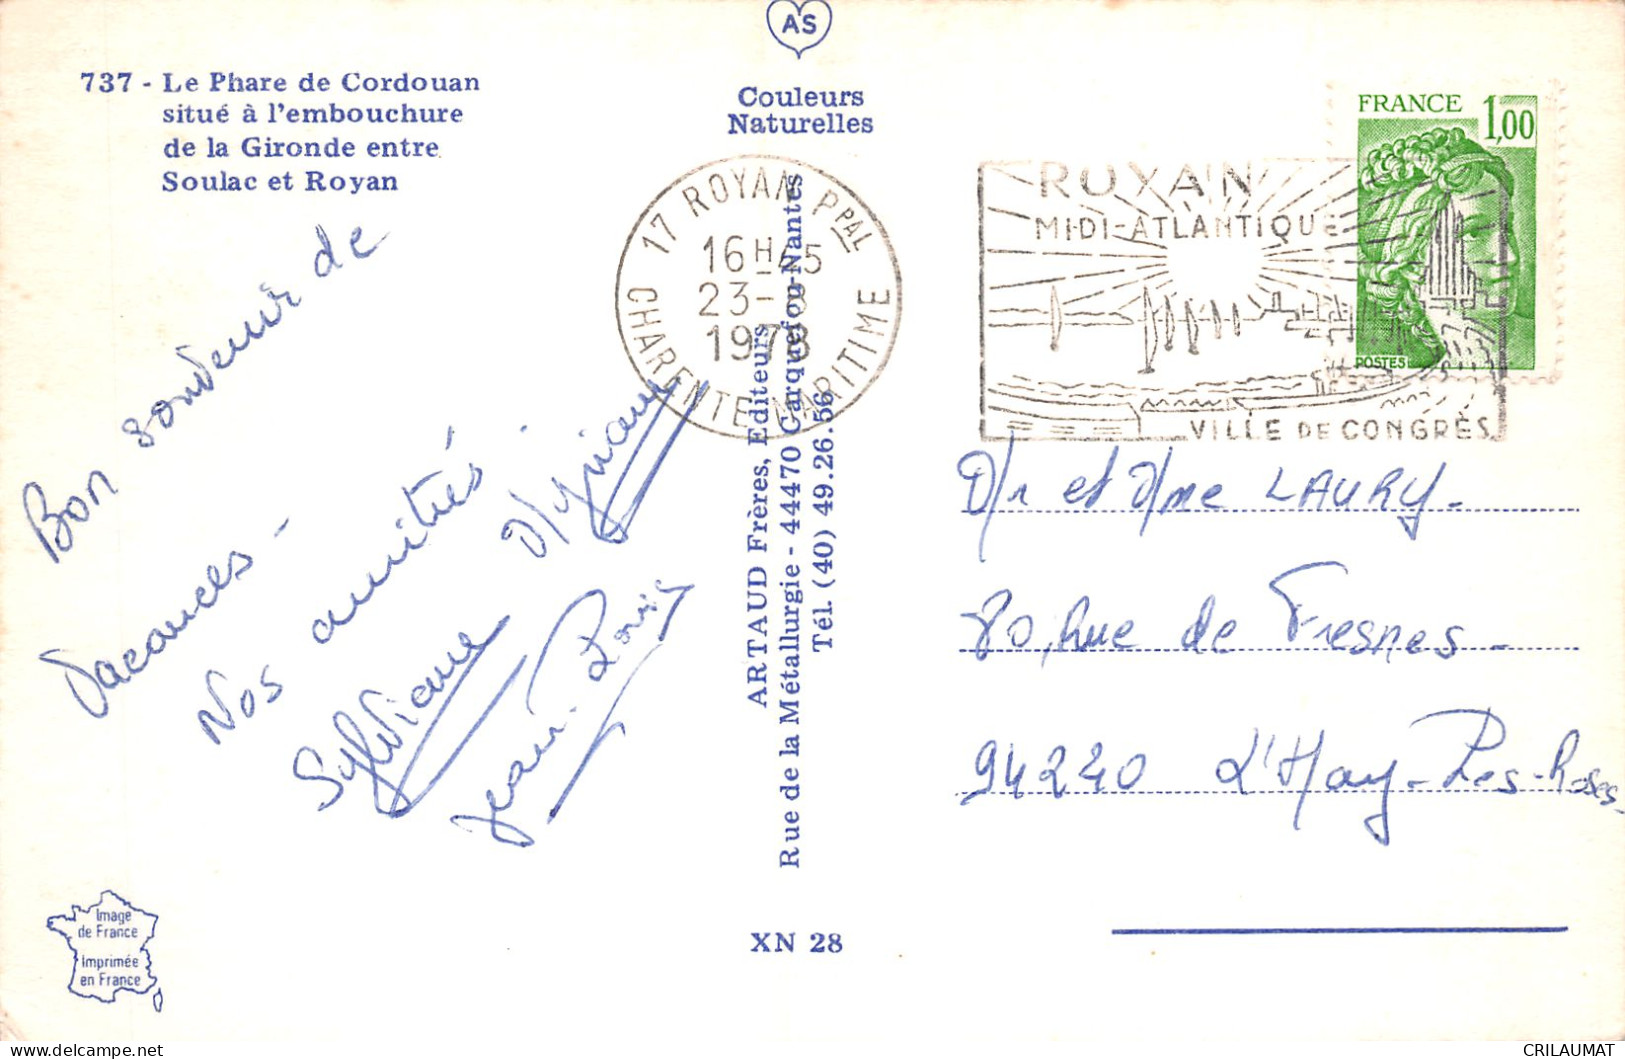 AS
737 - Le Phare de Cordouan
situé à l'embouchure
de la Gironde entre
Soulac et Royan
Couleurs
Naturelles
FRANCE 1,00
POSTES
17 ROYAN PPAL
16H45
23-8
1978
CHARENTE MARITIME
ROYAN
MIDI-ATLANTIQUE
VILLE DE CONGRÈS
Bon souvenir de
Vacances -
Nos amitiés.
Sylviane
Jean-Louis
ARTAUD Frères, Editeurs
Rue de la Métallurgie - 44470 Carquefou-Nantes
Tél. (40) 49.26.56
Mr et Mme LAURY-
80, Rue de Fresnes-
94240 L'Hay-Les-Roses-
Image
de France
Imprimée
en France
XN 28
CRILAUMAT